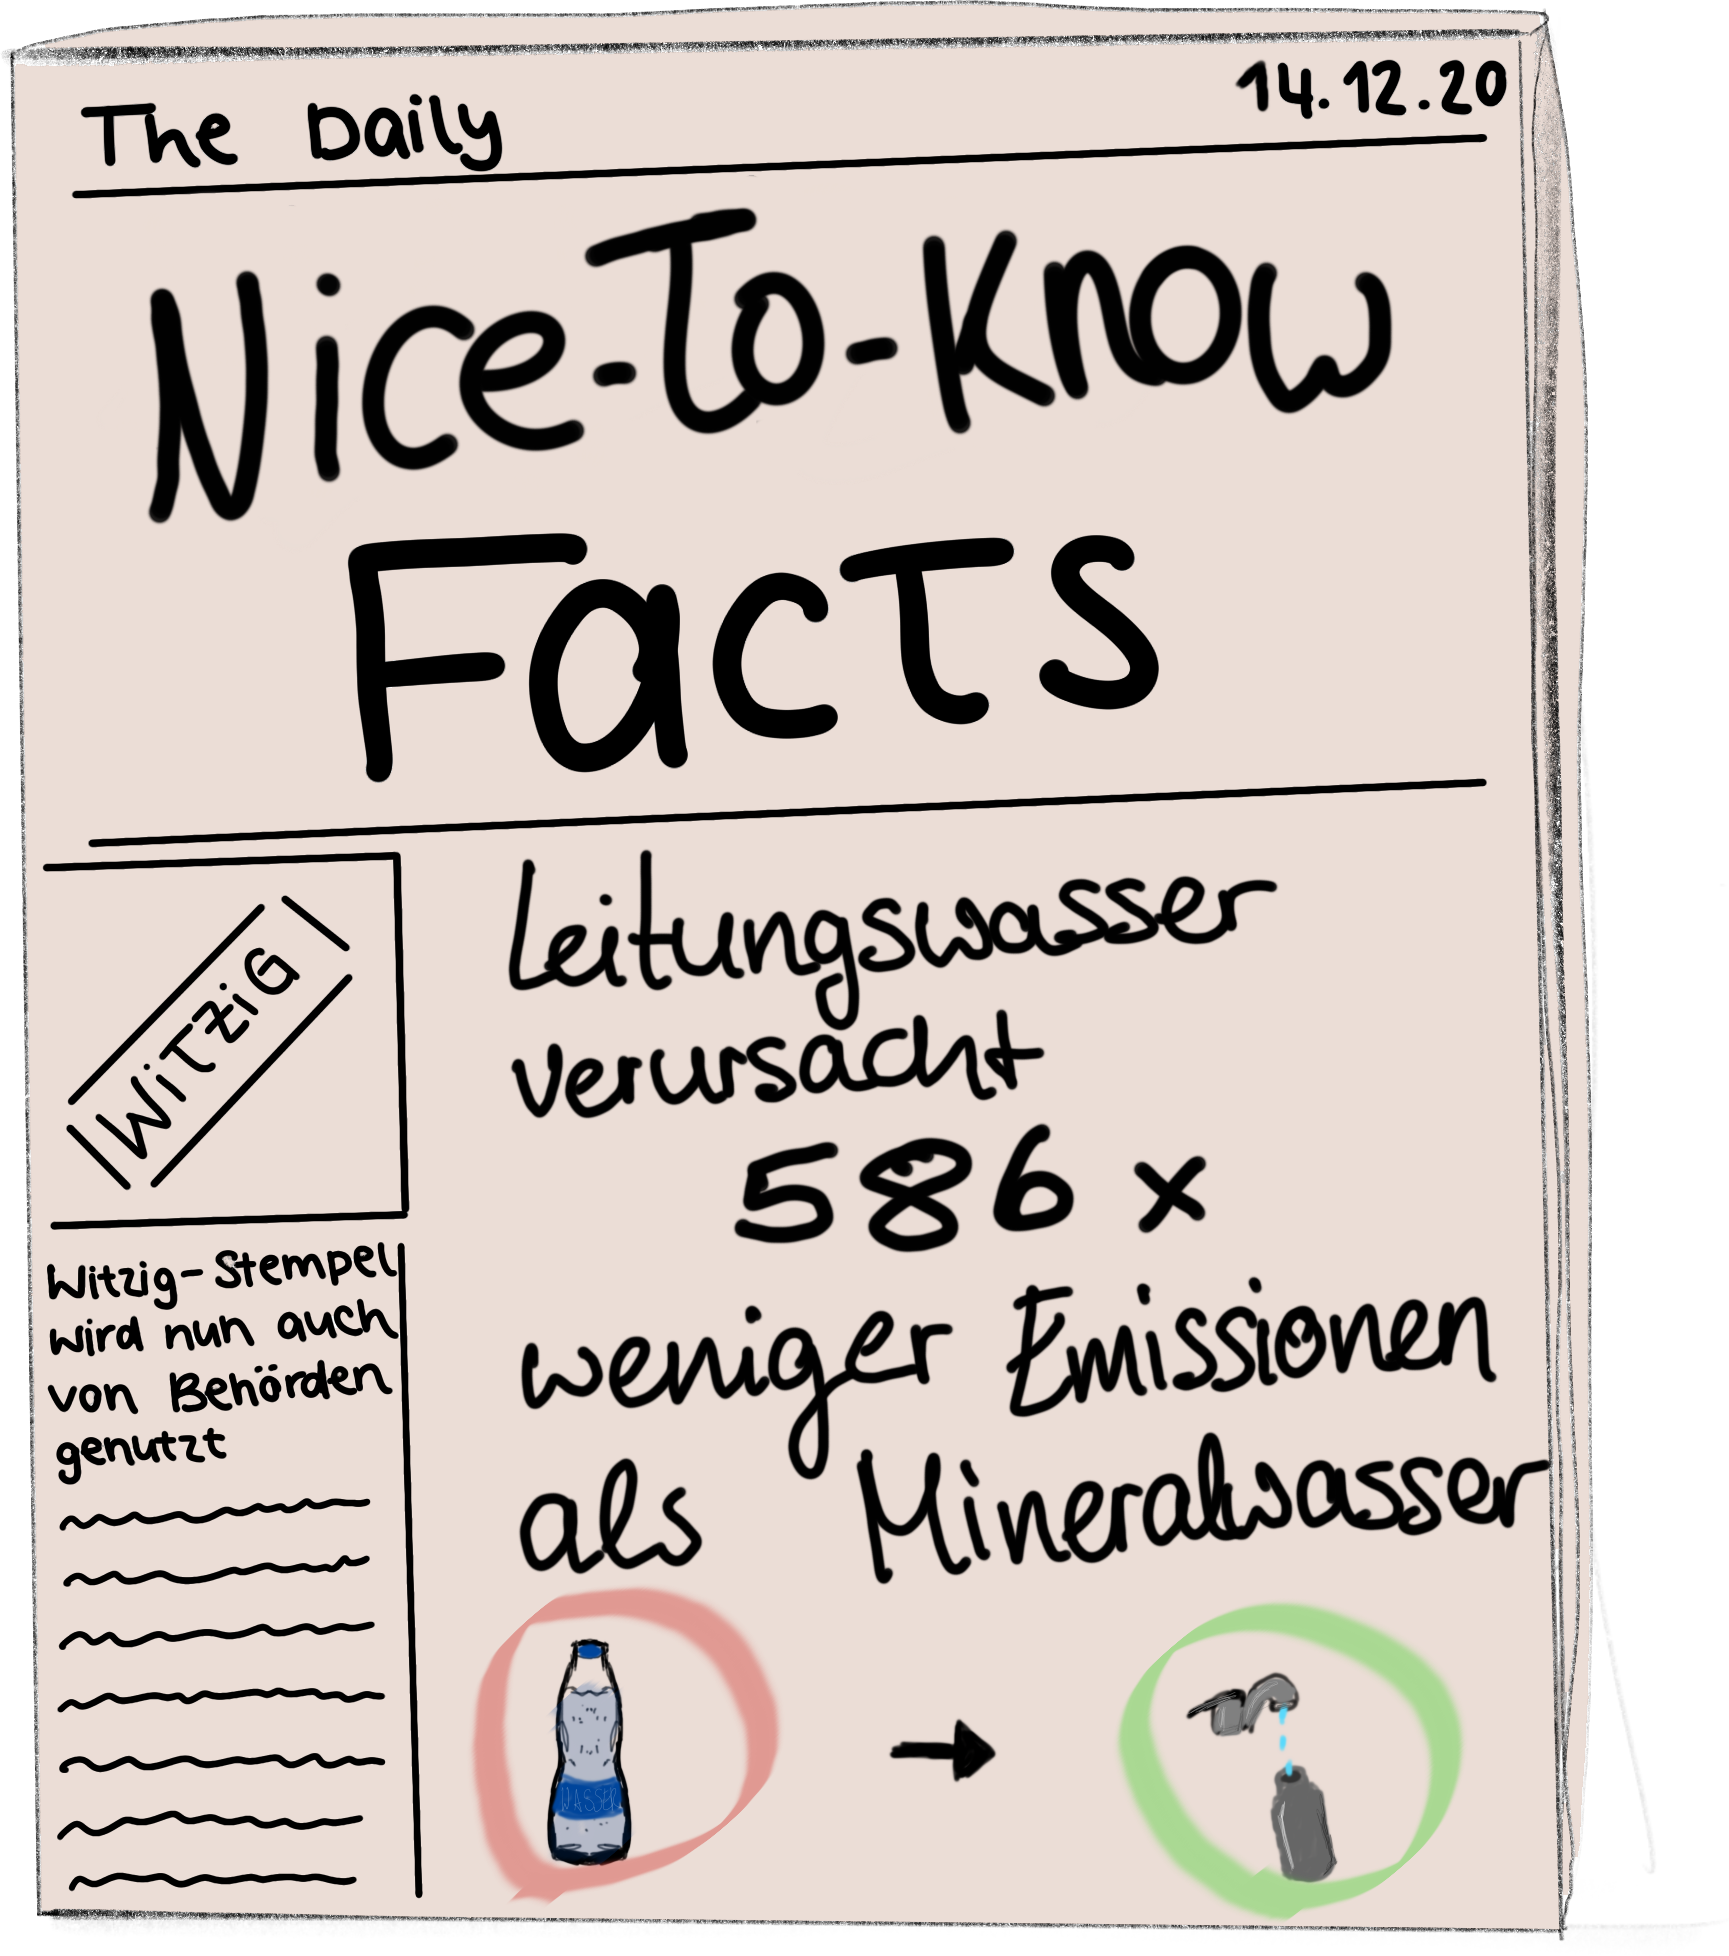 The Daily
14.12.20
Nice-To-Know
Facts
WiTZiG
Witzig-Stempel
wird nun auch
von Behörden
genutzt
Leitungswasser
verursacht
586 x
weniger Emissionen
als Mineralwasser
WASSER